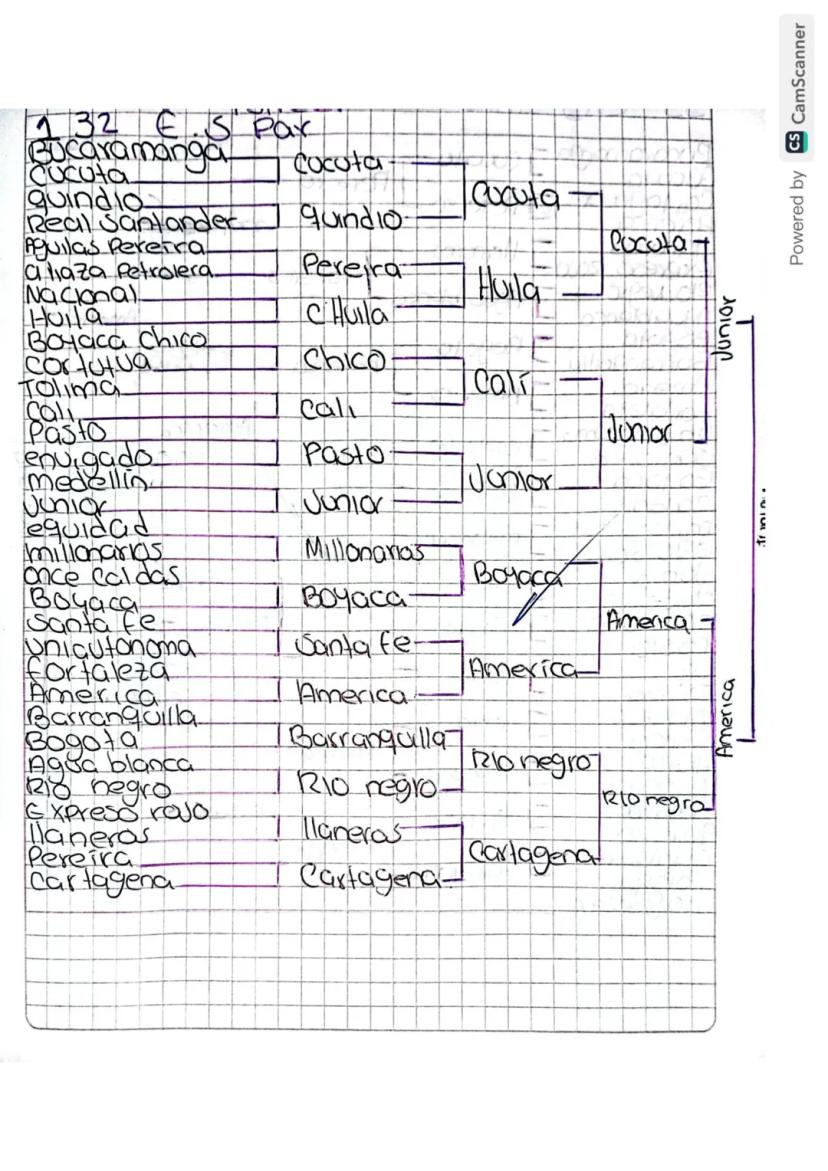 1 32 E.S Par
Bucaramanga
Cucuta
quindio
Real Santander
Aguilas Pereira
aliaza Petrolera
Nacional
Huila
Boyaca Chico
Cortutua
Tolima
Cali
Pasto
envigado
medellin
Junior
equidad
millonarios
Once Caldas
Boyaca
Santa fe
Uniautonoma
fortaleza
America
Barranquilla
Bogota
Agua blanca
Rio negro
Expreso rojo
llaneros
Pereira
Cartagena
Cucuta
quindio
Pereira
CHuila
Chico
Cali
Pasto
Junior
Millonarios
Boyaca
Santa fe
America
Barranquilla
Rio negro
llaneros
Cartagena
Cucuta
Huila
Cali
Junior
Boyaca
America
Rio negro
Cartagena
Cucuta
Junior
America
Rio negro
Junior
America
Powered by CS CamScanner